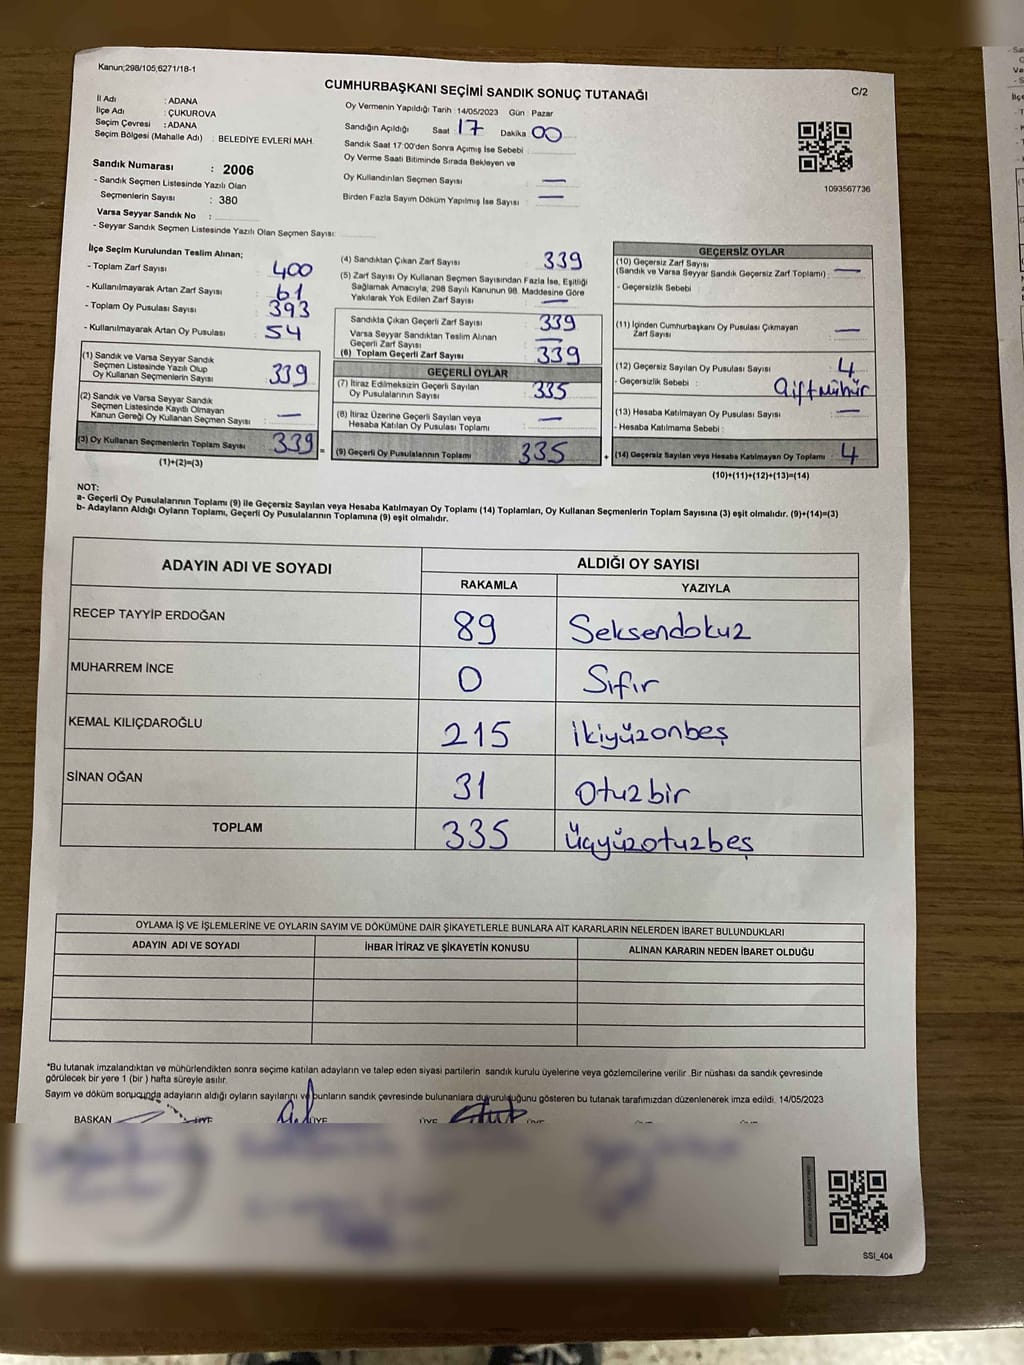 Kanun;298/105,6271/18-1
CUMHURBAŞKANI SEÇİMİ SANDIK SONUÇ TUTANAĞI
C/2
İl Adı : ADANA
İlçe Adı : ÇUKUROVA
Seçim Çevresi : ADANA
Seçim Bölgesi (Mahalle Adı) : BELEDİYE EVLERİ MAH.
Sandık Numarası : 2006
- Sandık Seçmen Listesinde Yazılı Olan
Seçmenlerin Sayısı : 380
Varsa Seyyar Sandık No :
- Seyyar Sandık Seçmen Listesinde Yazılı Olan Seçmen Sayısı:
Oy Vermenin Yapıldığı Tarih : 14/05/2023 Gün : Pazar
Sandığın Açıldığı Saat 17 Dakika 00
Sandık Saat 17:00'den Sonra Açımış İse Sebebi
Oy Verme Saati Bitiminde Sırada Bekleyen ve
Oy Kullandırılan Seçmen Sayısı —
Birden Fazla Sayım Döküm Yapılmış İse Sayısı : —
1093567736
İlçe Seçim Kurulundan Teslim Alınan;
- Toplam Zarf Sayısı : 400
- Kullanılmayarak Artan Zarf Sayısı : 61
- Toplam Oy Pusulası Sayısı : 393
- Kullanılmayarak Artan Oy Pusulası : 54
(1) Sandık ve Varsa Seyyar Sandık
Seçmen Listesinde Yazılı Olup
Oy Kullanan Seçmenlerin Sayısı : 339
(2) Sandık ve Varsa Seyyar Sandık
Seçmen Listesinde Kayıtlı Olmayan
Kanun Gereği Oy Kullanan Seçmen Sayısı : —
(3) Oy Kullanan Seçmenlerin Toplam Sayısı : 339 =
(1)+(2)=(3)
(4) Sandıktan Çıkan Zarf Sayısı : 339
(5) Zarf Sayısı Oy Kullanan Seçmen Sayısından Fazla İse, Eşitliği
Sağlamak Amacıyla, 298 Sayılı Kanunun 98. Maddesine Göre
Yakılarak Yok Edilen Zarf Sayısı : —
Sandıkta Çıkan Geçerli Zarf Sayısı : 339
Varsa Seyyar Sandıktan Teslim Alınan
Geçerli Zarf Sayısı : —
(6) Toplam Geçerli Zarf Sayısı : 339
GEÇERLİ OYLAR
(7) İtiraz Edilmeksizin Geçerli Sayılan
Oy Pusulalarının Sayısı : 335
(8) İtiraz Üzerine Geçerli Sayılan veya
Hesaba Katılan Oy Pusulası Toplamı : —
(9) Geçerli Oy Pusulalarının Toplamı : 335 +
GEÇERSİZ OYLAR
(10) Geçersiz Zarf Sayısı
(Sandık ve Varsa Seyyar Sandık Geçersiz Zarf Toplamı) : —
- Geçersizlik Sebebi :
(11) İçinden Cumhurbaşkanı Oy Pusulası Çıkmayan
Zarf Sayısı : —
(12) Geçersiz Sayılan Oy Pusulası Sayısı : 4
- Geçersizlik Sebebi : Çift mühür
(13) Hesaba Katılmayan Oy Pusulası Sayısı : —
- Hesaba Katılmama Sebebi :
(14) Geçersiz Sayılan veya Hesaba Katılmayan Oy Toplamı : 4
(10)+(11)+(12)+(13)=(14)
NOT:
a- Geçerli Oy Pusulalarının Toplamı (9) ile Geçersiz Sayılan veya Hesaba Katılmayan Oy Toplamı (14) Toplamları, Oy Kullanan Seçmenlerin Toplam Sayısına (3) eşit olmalıdır. (9)+(14)=(3)
b- Adayların Aldığı Oyların Toplamı, Geçerli Oy Pusulalarının Toplamına (9) eşit olmalıdır.
ADAYIN ADI VE SOYADI ALDIĞI OY SAYISI
RAKAMLA YAZIYLA
RECEP TAYYİP ERDOĞAN 89 Seksendokuz
MUHARREM İNCE 0 Sıfır
KEMAL KILIÇDAROĞLU 215 İkiyüzonbeş
SİNAN OĞAN 31 Otuzbir
TOPLAM 335 Üçyüzotuzbeş
OYLAMA İŞ VE İŞLEMLERİNE VE OYLARIN SAYIM VE DÖKÜMÜNE DAİR ŞİKAYETLERLE BUNLARA AİT KARARLARIN NELERDEN İBARET BULUNDUKLARI
ADAYIN ADI VE SOYADI İHBAR İTİRAZ VE ŞİKAYETİN KONUSU ALINAN KARARIN NEDEN İBARET OLDUĞU
*Bu tutanak imzalandıktan ve mühürlendikten sonra seçime katılan adayların ve talep eden siyasi partilerin sandık kurulu üyelerine veya gözlemcilerine verilir .Bir nüshası da sandık çevresinde
görülecek bir yere 1 (bir ) hafta süreyle asılır.
Sayım ve döküm sonucunda adayların aldığı oyların sayılarını ve bunların sandık çevresinde bulunanlara duyurulduğunu gösteren bu tutanak tarafımızdan düzenlenerek imza edildi. 14/05/2023
BAŞKAN ÜYE ÜYE ÜYE ÜYE
SSI_404